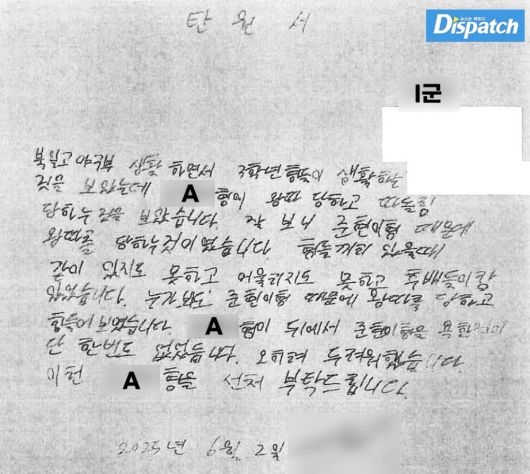 탄원서
뉴스는 팩트다
Dispatch
I군
북일고 야구부 생활 하면서 3학년 형들이 생활하는
것을 보았는데 A 형이 왕따 당하고 따돌림
당하는 것을 보았습니다. 잘 보니 준현이형 때문에
왕따를 당하는것이었습니다. 형들끼리 있을때
같이 있지도 못하고 어울리지도 못하고 후배들이랑
있었습니다. 누가봐도 준현이형 때문에 왕따를 당하고
힘들어 보였습니다. A 형이 뒤에서 준현이형을 욕한적이
단 한번도 없었습니다. 오히려 두려워했습니다
이런 A 형을 선처 부탁드립니다.
2025년 6월 2일